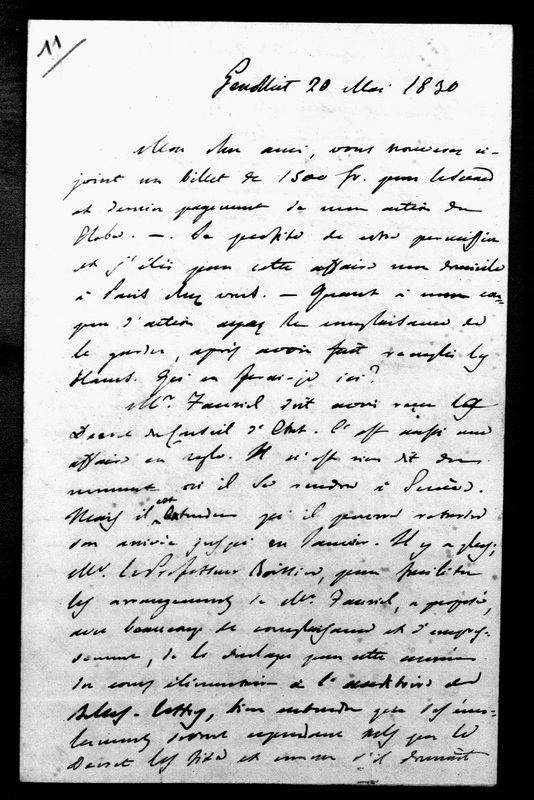 11
Genthod 20 Mai 1830
Mon cher ami, vous trouverez ci-
joint un billet de 1500 fr. pour le second
et dernier payement de mon action du
Globe. — Je profite de votre permission
et j'élis pour cette affaire mon domicile
à Paris chez vous. — Quant à mon cou-
pon d'action ayez la complaisance de
le garder, après avoir fait remplir les
blancs. Qui en ferai-je ici?
Mr. Fauriel doit avoir reçu le
Décret du Conseil d'Etat. C'est aussi une
affaire en règle. Il n'est rien dit du
moment où il se rendra à Genève.
Mais il est entendu qu'il pourra retarder
son arrivée jusqu'en Janvier. Il y a plus;
Mr. le Professeur Boissier, pour faciliter
les arrangements de Mr. Fauriel, a proposé,
avec beaucoup de complaisance et d'empres-
sement, de le décharger pour cette année
du cours élémentaire à l'auditoire de
Belles-lettres, bien entendu que ses émo-
luments seront cependant tels que le
Décret les fixe et comme s'il donnait